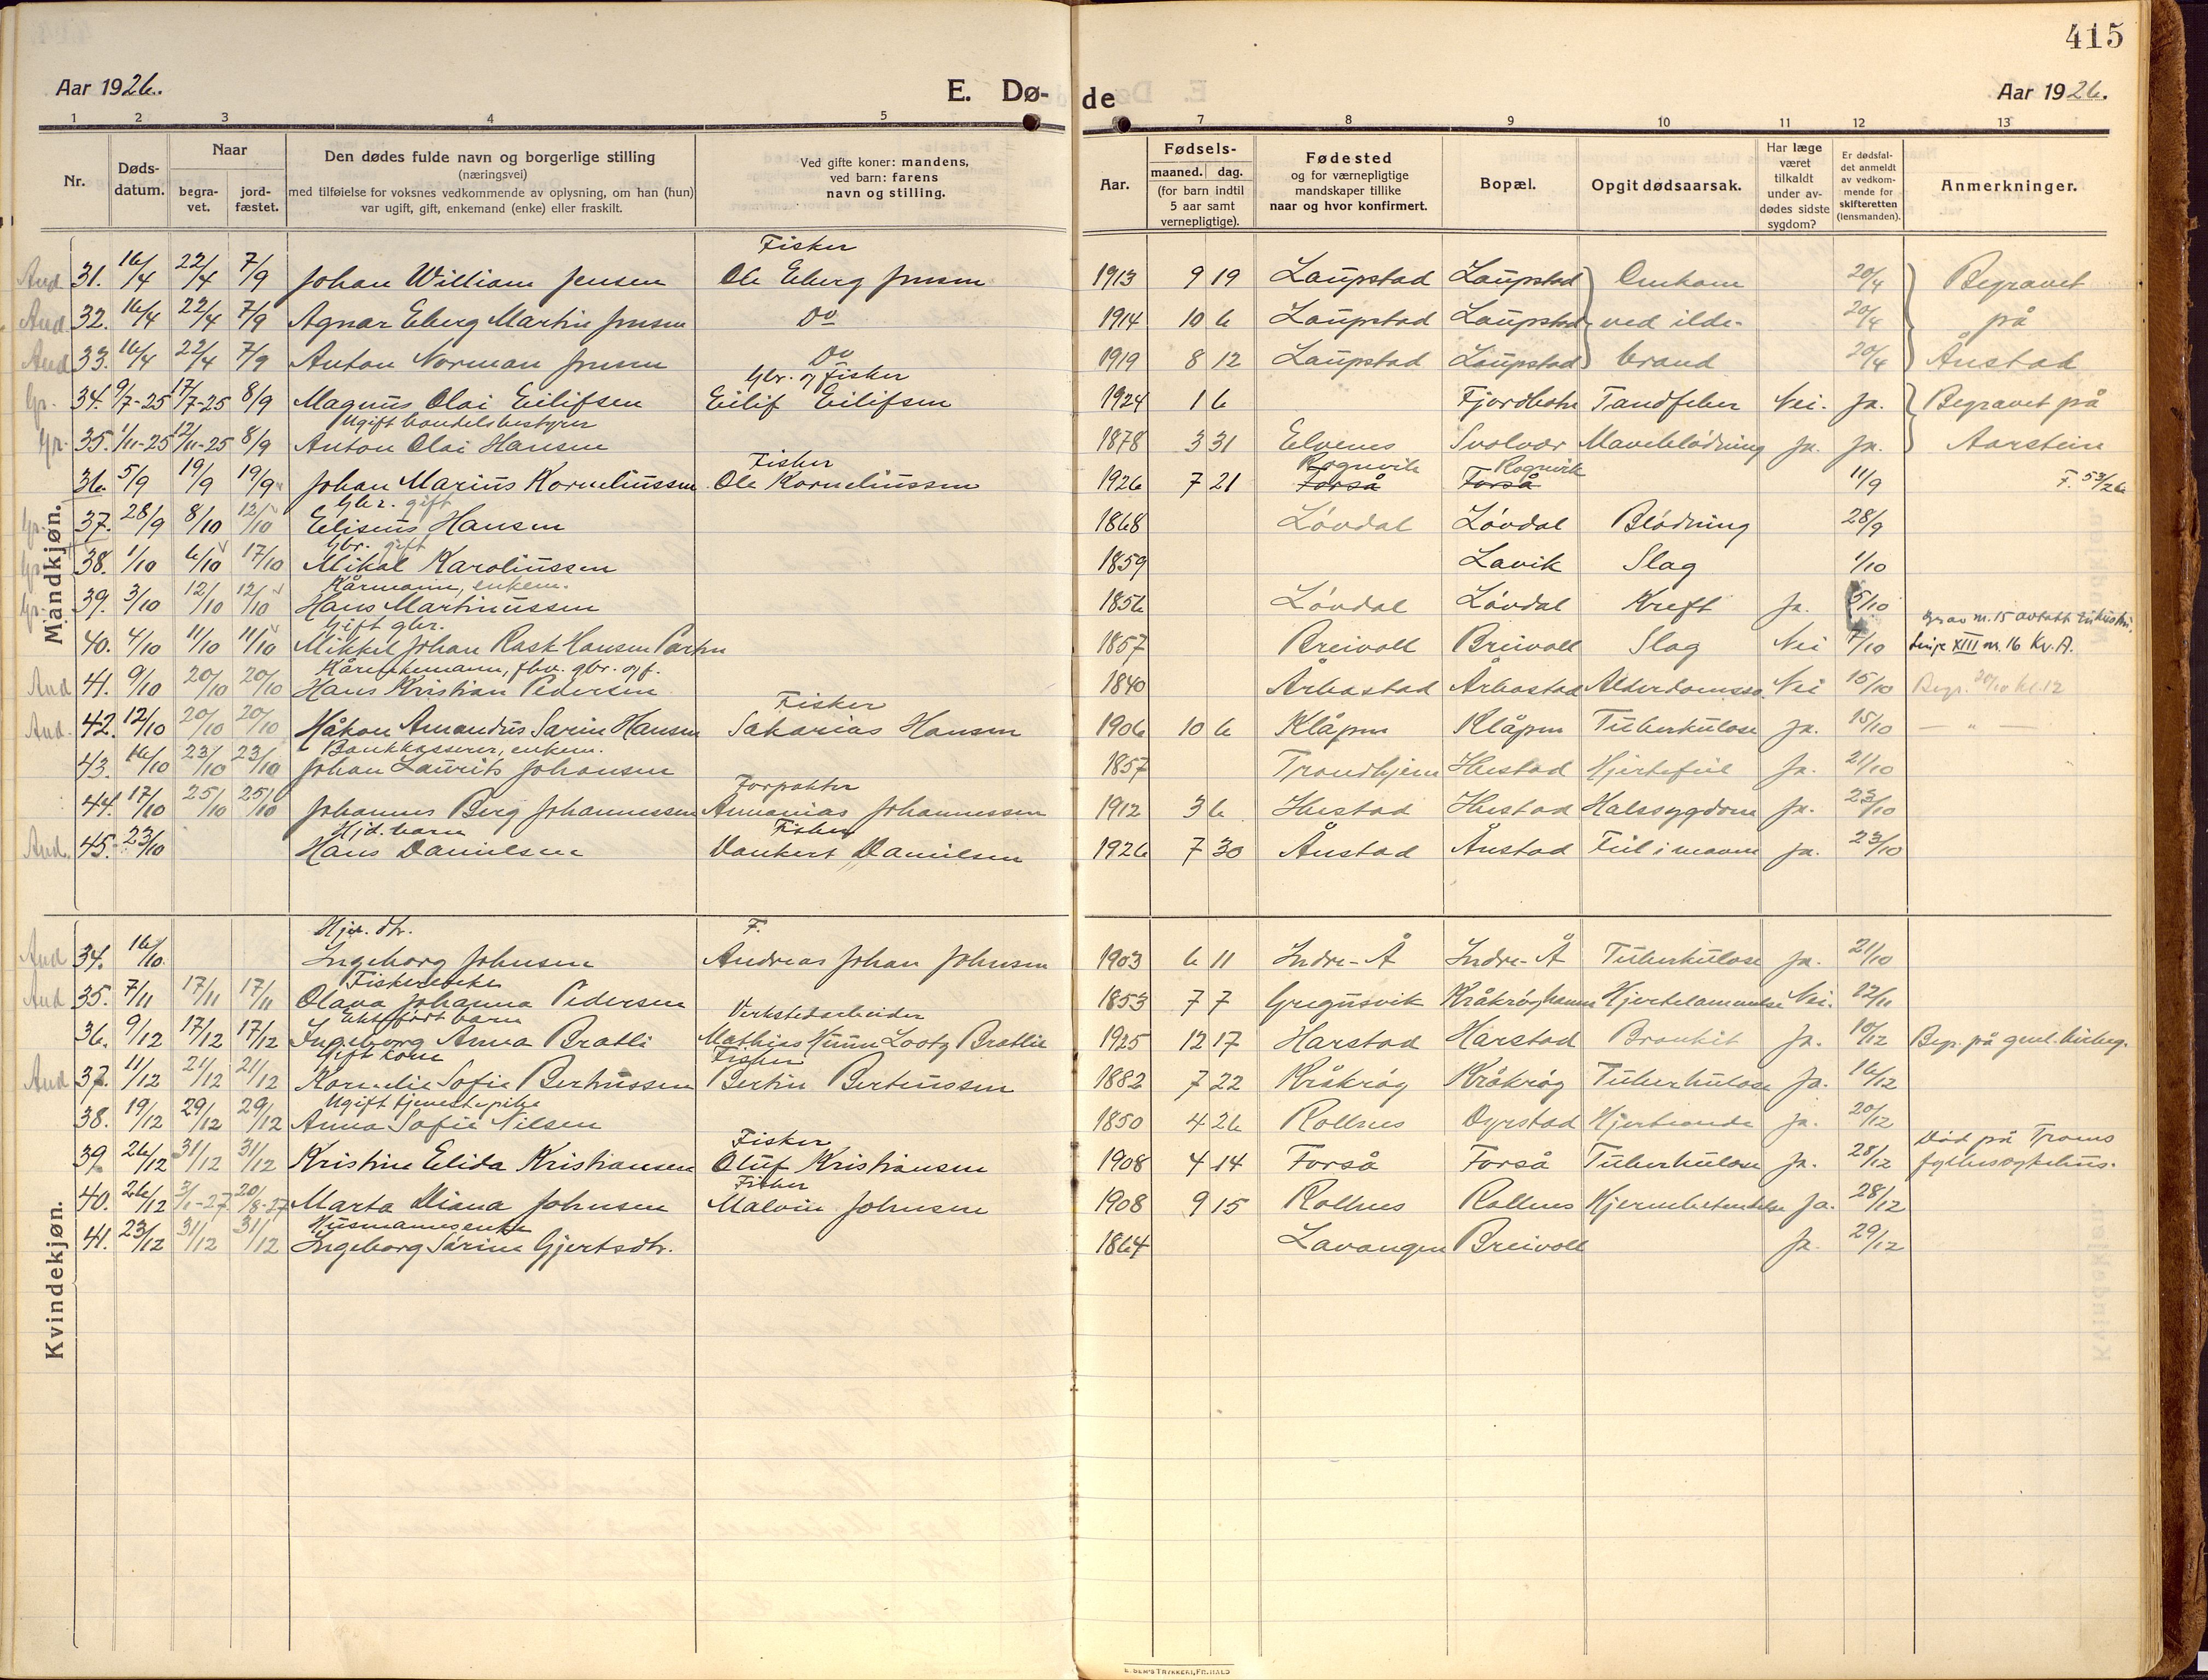 415
Aar 1926. E. Dø- de Aar 1926.
1 2 3 4 5 7 8 9 10 11 12 13
Nr. Døds-datum. Naar begra-vet. jord-fæstet. Den dødes fulde navn og borgerlige stilling (næringsvei) med tilføielse for voksnes vedkommende av oplysning, om han (hun) var ugift, gift, enkemand (enke) eller fraskilt. Ved gifte koner: mandens, ved barn: farens navn og stilling. Aar. Fødsels- maaned. dag. (for barn indtil 5 aar samt vernepligtige). Fødested og for værnepligtige mandskaper tillike naar og hvor konfirmert. Bopæl. Opgit dødsaarsak. Har læge været tilkaldt under av-dødes sidste sygdom? Er dødsfal-det anmeldt av vedkom-mende for skifteretten (lensmanden). Anmerkninger.
Mandkjøn.
Fisker
And 31. 16/4 22/4 7/9 Johan William Jensen Ole Eberg Jensen 1913 9 19 Laupstad Laupstad Omkom 20/4 Begravet
And. 32. 16/4 22/4 7/9 Agnar Eberg Martin Jensen Do 1914 10 6 Laupstad Laupstad ved ilde- 20/4 på
And 33. 16/4 22/4 7/9 Anton Norman Jensen Do 1919 8 12 Laupstad Laupstad brand 20/4 Ånstad
Gbr. og Fisker
Gr. 34. 9/7-25 17/7-25 8/9 Magnus Olai Eilifsen Eilif Eilifsen 1924 1 6 Fjordbotn Tandfeber Nei. Ja. Begravet på
Ugift handelsbestyrer
Gr. 35. 1/11-25 12/11-25 8/9 Anton Olai Hansen 1878 3 31 Elvenes Svolvær Maveblödning Ja. Ja. Aarstein
Fisker Rognvik Rognvik
36 5/9 19/9 19/9 Johan Marius Korneliussen Ole Korneliussen 1926 7 21 Forså Forså 11/9 F. 53/26
Gbr. gift
Gr. 37. 28/9 8/10 12/10 Eliseus Hansen 1868 Lövdal Lövdal Blödning 28/9
Gbr. gift
Gr. 38. 1/10 6/10 17/10 Mikal Karoliussen 1859 Lavik Slag 1/10
Kårmann, enkem.
Gr. 39. 3/10 12/10 12/10 Hans Martinussen 1856 Lövdal Lövdal Kreft Ja. 5/10
Gift gbr. Grav nr. 15
40. 4/10 11/10 11/10 Mikkel Johan Rask Hansen 1857 Breivoll Breivoll Slag Nei 7/10 linje XIII nr. 16 Kv. A.
And 41. 9/10 20/10 20/10 Hans Kristian Pedersen 1840 Årbostad Årbostad Alderdomssv. Nei 15/10 Begr. 20/10 kl. 12
Fisker
And. 42. 12/10 20/10 20/10 Håkon Amandus Sarin Hansen Sakarias Hansen 1906 10 6 Klåpen Klåpen Tuberkulose Ja. 15/10 — "
Bankkasserer, enkem.
43. 16/10 23/10 23/10 Johan Laurits Johansen 1857 Trondhjem Ibestad Hjertefeil Ja. 21/10
Forpakter
44. 17/10 25/10 25/10 Johannes Berg Johannessen Annanias Johannessen 1912 3 6 Ibestad Ibestad Halssygdom Ja. 23/10
Hjd. barn Fisker
And. 45. 23/10 Hans Danielsen Dankert Danielsen 1926 7 30 Ånstad Ånstad Feil i maven Ja. 23/10
Kvindekjøn.
Hjd. dtr. F.
And 34. 16/10 Ingeborg Johnsen Andreas Johan Johnsen 1903 6 11 Indre-Å Indre-Å Tuberkulose Ja. 21/10
Fiskerenke
And 35. 7/11 17/11 17/11 Olava Johanna Pedersen 1853 7 7 Gregusvik Kråkröghamn Hjertelammelse Nei. 12/11
Ektefödt barn Verkstedarbeider
36. 9/12 17/12 17/12 Ingeborg Anna Bratli Mathias Bratlie 1925 12 17 Harstad Harstad Bronkit Ja. 10/12
Gift kone Fisker
And 37. 11/12 21/12 21/12 Kornelie Sofie Bertinussen Bertin Bertinussen 1882 7 22 Kråkrög Kråkrög Tuberkulose Ja. 16/12
Ugift tjenestepike
38. 19/12 29/12 29/12 Anna Sofie Nilsen 1850 4 26 Rollnes Dyrstad Hjerteonde Ja. 20/12
Fisker Död på Troms
39 26/12 31/12 31/12 Kristine Elida Kristiansen Oluf Kristiansen 1908 4 14 Forså Forså Tuberkulose Ja. 28/12 fylkessykehus.
Fisker
40. 26/12 3/1-27 20/8-27 Marta Diana Johnsen Malvin Johnsen 1908 9 15 Rollnes Rollnes Hjernebetendelse Ja. 28/12
Husmannsenke
41. 23/12 31/12 31/12 Ingeborg Sörine Gjertsdtr. 1864 Lavangen Breivoll Ja. 29/12